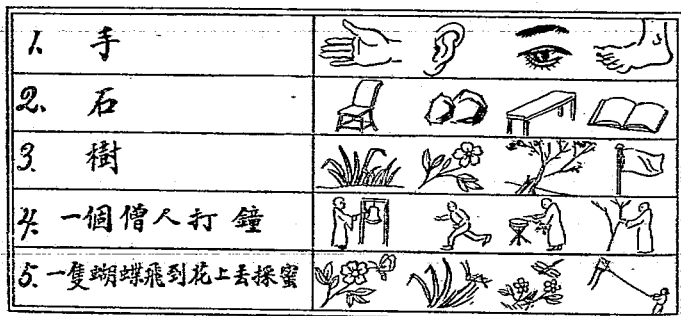 1. 手
2. 石
3. 樹
4. 一個僧人打鐘
5. 一隻蝴蝶飛到花上去採蜜